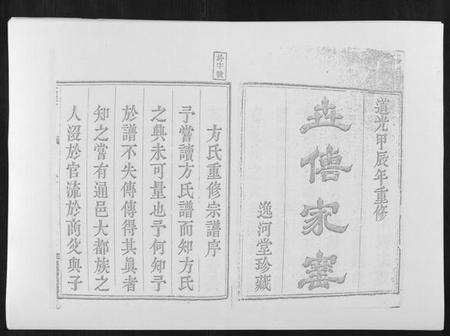 道光甲辰年重修
世傳家寶
逸河堂珍藏
方氏重修宗譜序
予嘗讀方氏譜而知方氏
之興未可量也予何知予
於譜不失傳傳得其眞者
知之嘗有通邑大都族之
人沒於官流於商爻與子